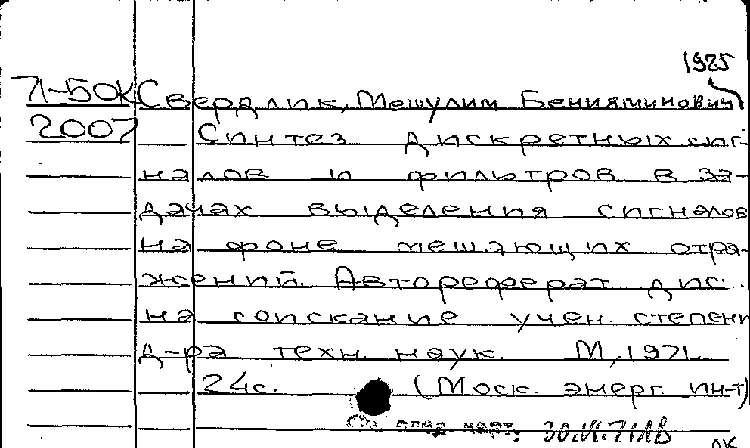 1925
71-50К Свердлик, Мешулим Бенияминович
2007 Синтез дискретных сиг-
налов и фильтров в за-
дачах выделения сигналов
на фоне мешающих отра-
жений. Автореферат дис.
на соискание учен. степени
д-ра техн. наук. М, 1971.
24с. (Моск. энерг. ин-т)